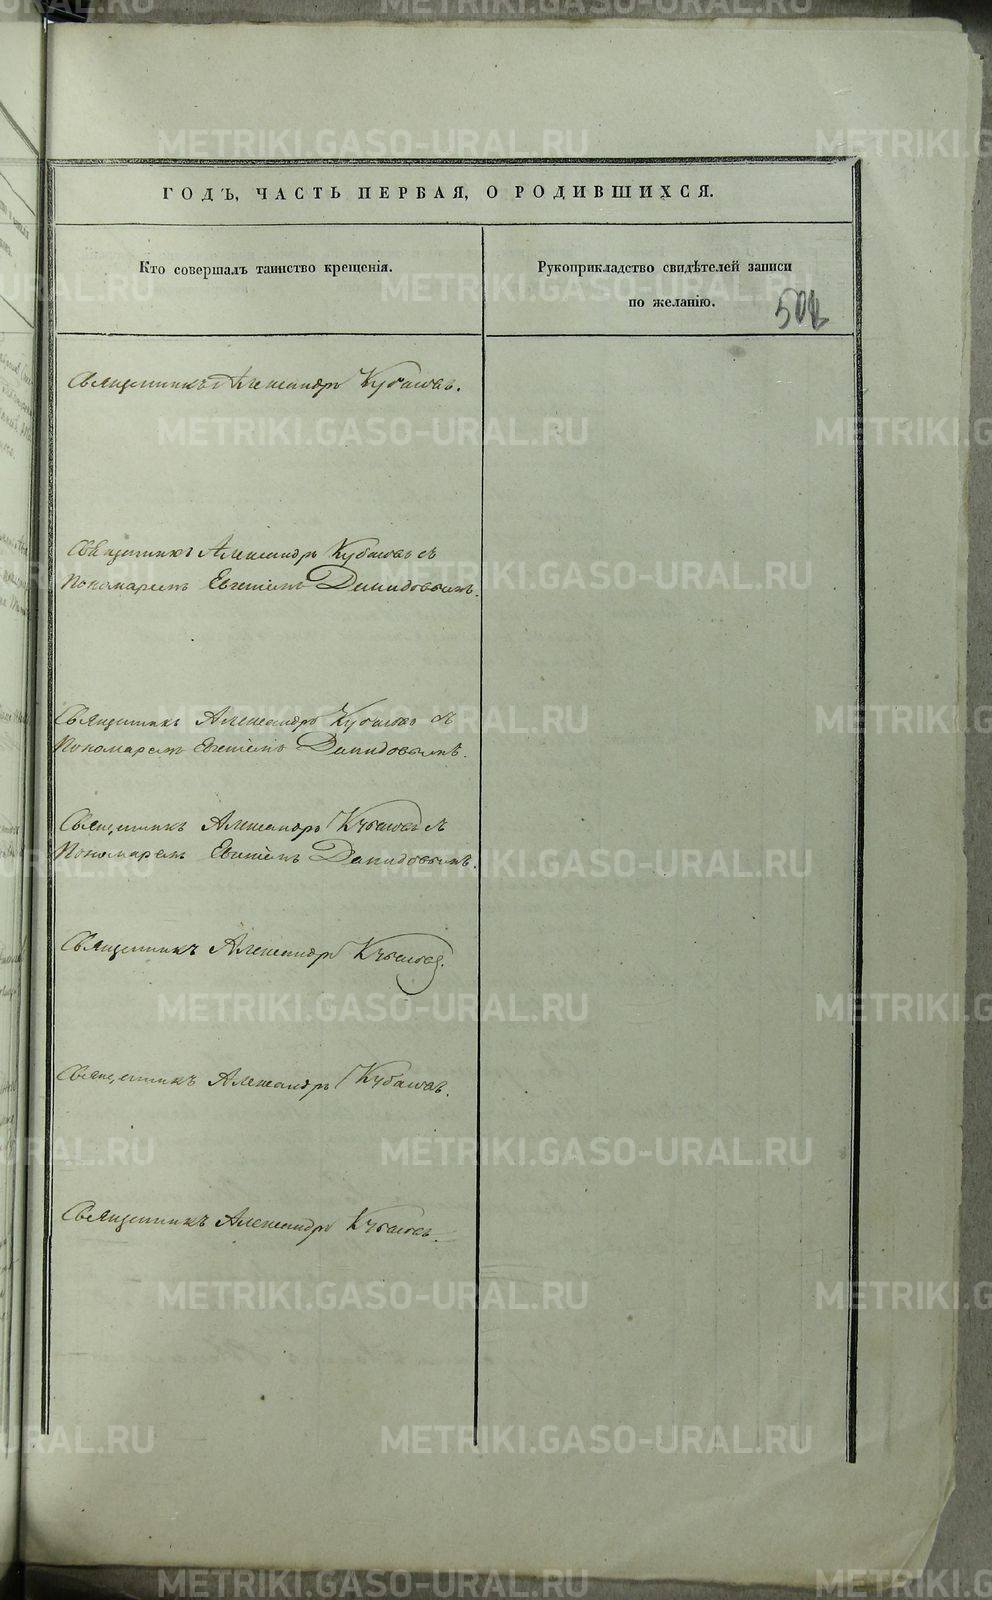 ГОДЪ, ЧАСТЬ ПЕРВАЯ, О РОДИВШИХСЯ.
Кто совершалъ таинство крещенія.
Рукоприкладство свидѣтелей записи
по желанію.
502
Священникъ Александръ Кубасовъ.
Священникъ Александръ Кубасовъ съ
Пономаремъ Евгеніемъ Демидовымъ.
Священникъ Александръ Кубасовъ съ
Пономаремъ Евгеніемъ Демидовымъ.
Священникъ Александръ Кубасовъ съ
Пономаремъ Евгеніемъ Демидовымъ.
Священникъ Александръ Кубасовъ.
Священникъ Александръ Кубасовъ.
Священникъ Александръ Кубасовъ.
METRIKI.GASO-URAL.RU